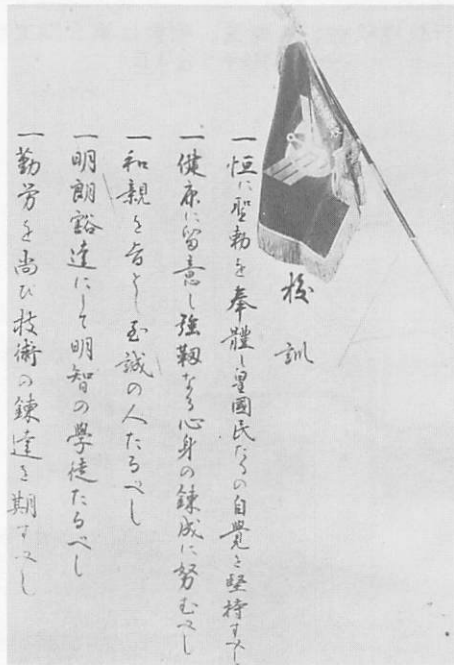 校訓
一 恒に聖勅を奉體し皇國民たるの自覺を堅持すべし
一 健康に留意し強靱なる心身の錬成に努むべし
一 和親を旨とし至誠の人たるべし
一 明朗豁達にして明智の學徒たるべし
一 勤労を尚び技術の錬達を期すべし